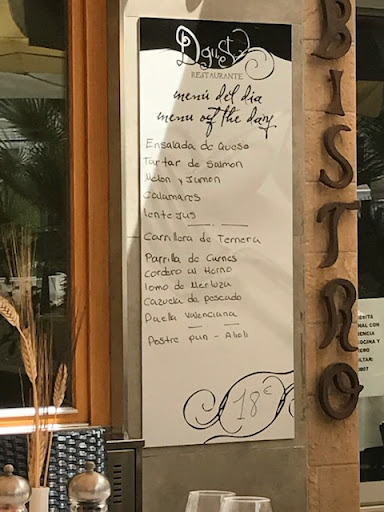 Dgust
RESTAURANTE
menú del dia
menu of the day
Ensalada de Queso
Tartar de Salmon
Melon y Jamon
Calamares
Lentejus
Carrillera de Ternera
Parrilla de Carnes
Cordero al Horno
lomo de Merluza
Cazuela de pescado
Paella Valenciana
Postre pan - Alioli
18€
BISTRO